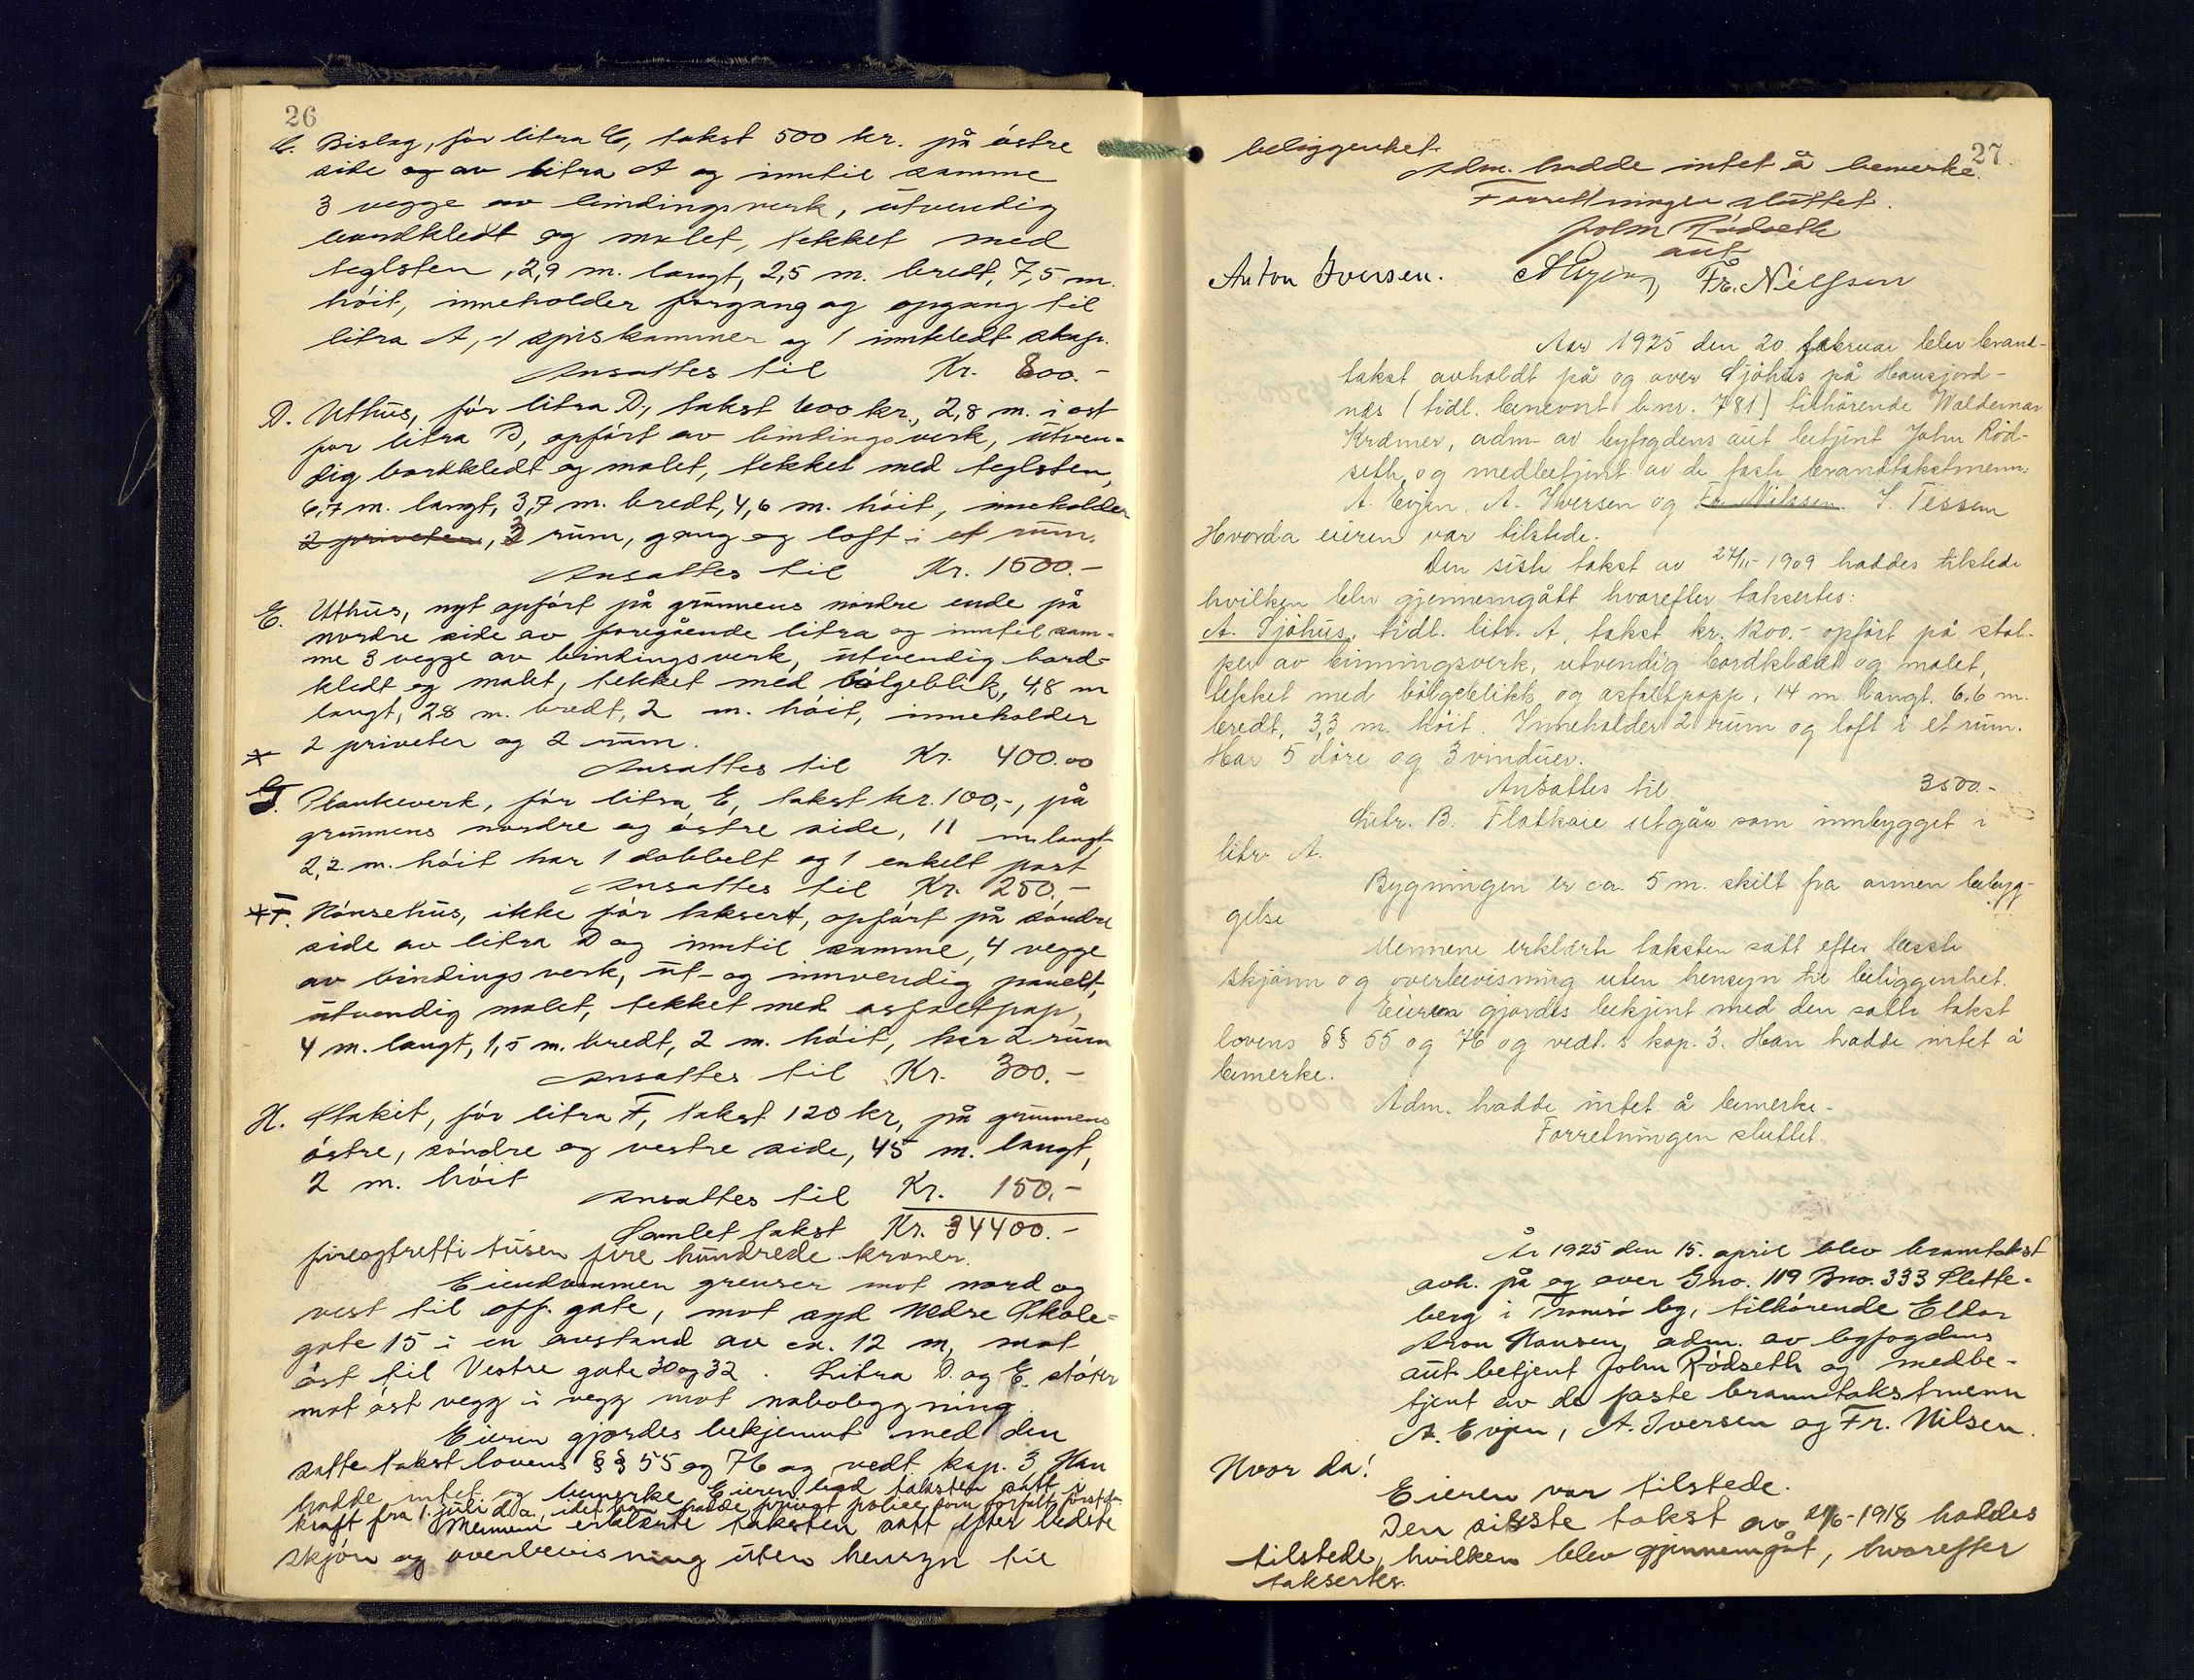 26
C. Bislag, før litra C, takst 500 kr. på østre
side og av litra A og inntil samme
3 vegge av bindingsverk, utvendig
bordkledt og malet, tekket med
teglsten, 2,9 m. langt, 2,5 m. bredt, 7,5 m.
høit, inneholder forgang og opgang til
litra A, 1 spiskammer og 1 innkledt skap.
Ansattes til Kr. 800.-
D. Uthus, før litra D, takst 600 kr., 2,8 m. i ost
for litra B, opført av bindingsverk, utven-
dig bordkledt og malet, tekket med teglsten,
6,7 m. langt, 3,7 m. bredt, 4,6 m. høit, inneholder
2 priveter, 3 rum, gang og loft i et rum.
Ansattes til Kr. 1500.-
E. Uthus, nyt opført på grunnens nordre ende på
nordre side av foregående litra og inntil sam-
me 3 vegge av bindingsverk, utvendig bord-
kledt og malet, tekket med bølgeblik, 4,8 m
langt, 2,8 m. bredt, 2 m. høit, inneholder
2 priveter og 2 rum.
Ansattes til Kr. 400.00
G. Plankeverk, før litra E, takst kr. 100,-, på
grunnens nordre og østre side, 11 m. langt
2,2 m. høit har 1 dobbelt og 1 enkelt port
Ansattes til Kr. 250,-
F. Hønsehus, ikke før taksert, opført på søndre
side av litra D og inntil samme, 4 vegge
av bindingsverk, ut- og innvendig panelt,
utvendig malet, tekket med asfaltpap,
4 m. langt, 1,5 m. bredt, 2 m. høit, har 2 rum
Ansattes til Kr. 300.-
H. Stakit, før litra F, takst 120 kr, på grunnens
østre, søndre og vestre side, 45 m. langt,
2 m. høit
Ansattes til Kr. 150.-
Samlet takst Kr. 34400.-
fireogtretti tusen fire hundrede kroner.
Eiendommen grenser mot nord og
vest til off. gate, mot syd Nedre Skole-
gate 15 i en avstand av ca. 12 m, mot
øst til Vestre gate 30 og 32. Litra D. og E. støter
mot øst vegg i vegg mot nabobygning
Eieren gjordes bekjennt med den
satte takst lovens §§ 55 og 76 og vedt. kap. 3. Han
hadde intet og bemerke. Eieren bad taksten satt i
kraft fra 1. juli d.a., idet han hadde privat police som forfalt først da.
Mennene erklærte taksten satt efter bedste
skjøn og overbevisning uten hensyn til
27.
beliggenhet.
Adm. hadde intet å bemerke.
Forretningen sluttet.
John Rødseth
aut
Anton Iversen. A Evjen, Fr. Nielssen
Aar 1925 den 20. februar blev brand-
takst avholdt på og over Sjøhus på Hansjord-
nes (tidl. benevnt bnr. 781) tilhørende Waldemar
Kræmer, adm av byfogdens aut betjent John Rød-
seth, og medbetjent av de faste brandtakstmenn:
A. Evjen, A. Iversen og Fr. Nilssen. I. Tessem
Hvorda eieren var tilstede.
Den siste takst av 24/11-1909 haddes tilstede
hvilken blev gjennemgått hvorefter taksertes:
A. Sjøhus, tidl. litr. A, takst kr. 1200.- opført på stol-
per av binningsverk, utvendig bordklædt og malet,
tekket med bølgeblikk og asfaltpapp, 14 m. langt, 6,6 m.
bredt, 3,3 m. høit. Inneholder 2 rum og loft i et rum.
Har 5 døre og 3 vinduer.
Ansattes til 3500.-
Litr. B. Flatkaie utgår som innbygget i
litr. A.
Bygningen er ca. 5 m. skilt fra annen bebyg-
gelse
Mennene erklærte taksten satt efter beste
skjønn og overbevisning uten hensyn til beliggenhet.
Eieren gjordes bekjent med den satte takst
lovens §§ 55 og 76 og vedt.s kap. 3. Han hadde intet å
bemerke.
Adm. hadde intet å bemerke.
Forretningen sluttet.
År 1925 den 15. april blev branntakst
avh. på og over Gno. 119 Bno. 333 Slette-
berg i Tromsø by, tilhørende Eldor
Aron Hansen, adm. av byfogdens
aut. betjent John Rødseth og medbe-
tjent av de faste branntakstmenn
A. Evjen, A. Iversen og Fr. Nilsen.
Hvor da!
Eieren var tilstede.
Den sisste takst av 21/6-1918 haddes
tilstede, hvilken blev gjennemgåt, hvorefter
taksertes.